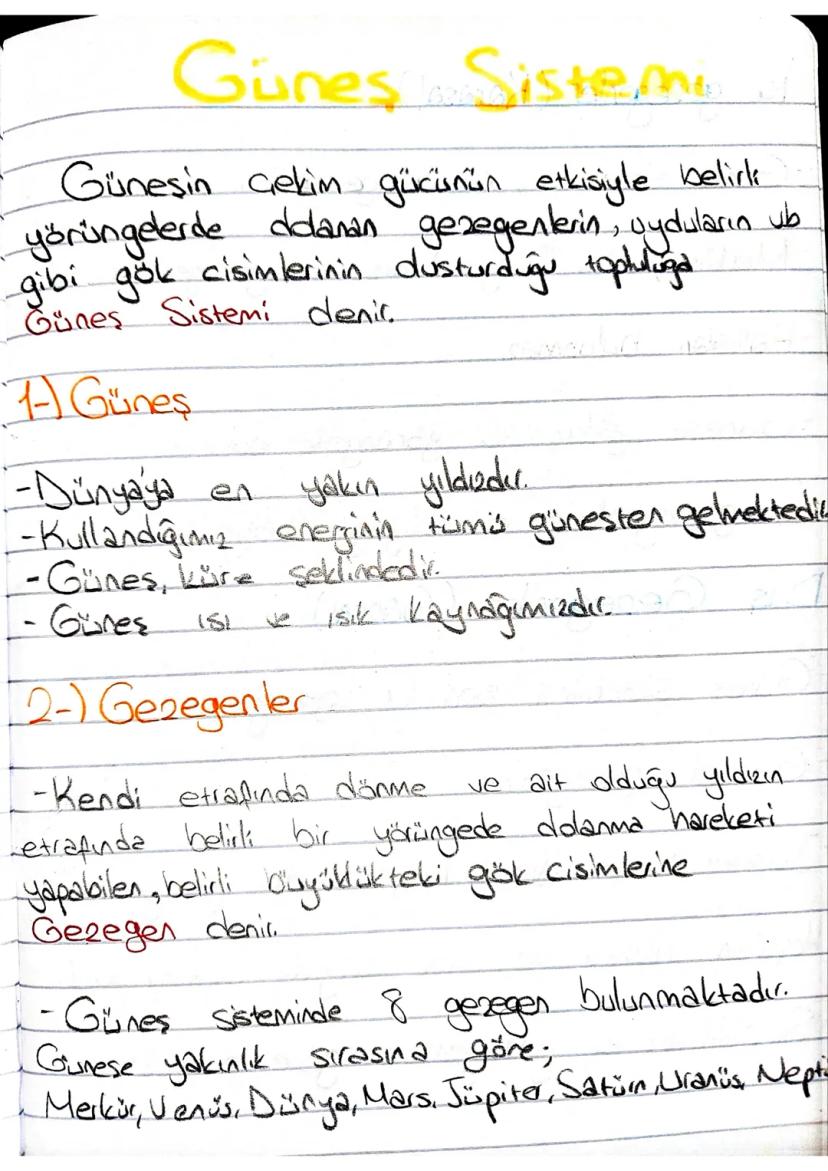 Güneş Sistemi
Güneşin çekim gücünün etkisiyle belirli
yörüngelerde dolanan gezegenlerin, uyduların vb
gibi gök cisimlerinin oluşturduğu topluluğa
Güneş Sistemi denir.
1-) Güneş
-Dünya'ya en yakın yıldızdır.
-Kullandığımız enerjinin tümü güneşten gelmektedir
-Güneş, küre şeklindedir.
- Güneş ısı ve ışık kaynağımızdır.
2-) Gezegenler
-Kendi etrafında dönme ve ait olduğu yıldızın
etrafında belirli bir yörüngede dolanma hareketi
yapabilen, belirli büyüklükteki gök cisimlerine
Gezegen denir.
- Güneş sisteminde 8 gezegen bulunmaktadır.
Güneşe yakınlık sırasına göre;
Merkür, Venüs, Dünya, Mars, Jüpiter, Satürn, Uranüs, Nept